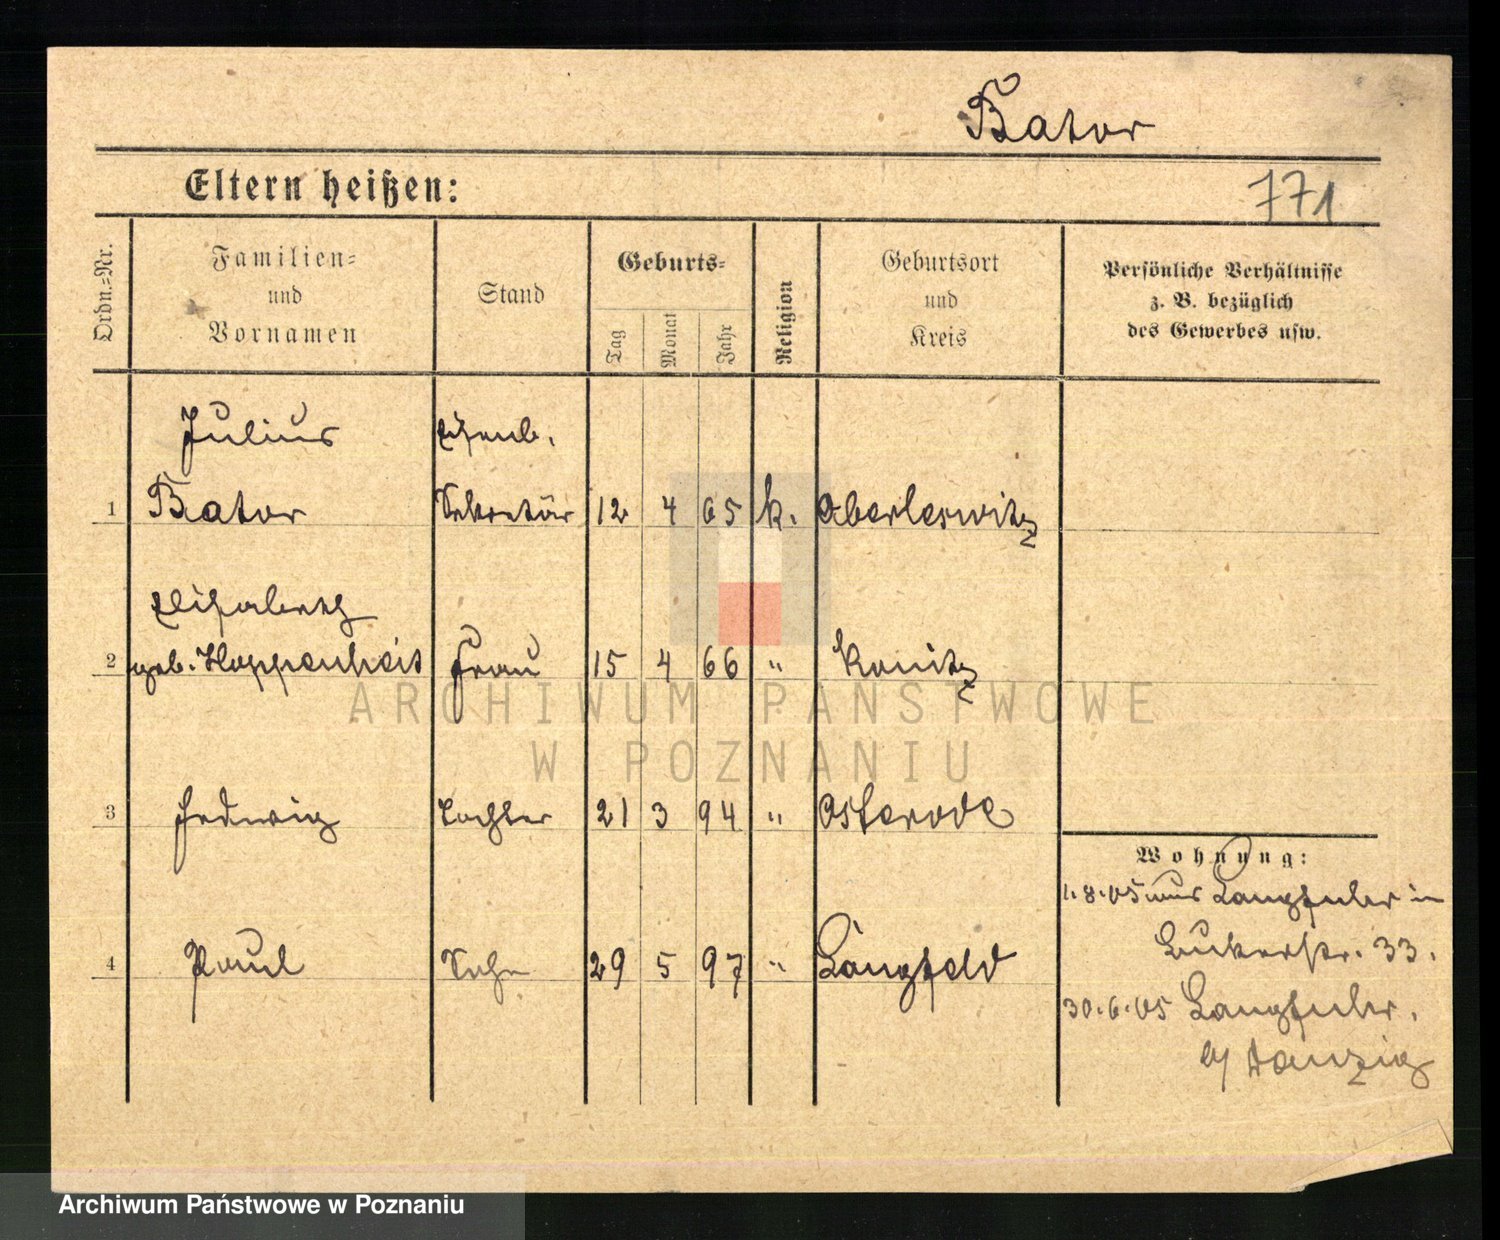 Bator
Eltern heißen:
771
Ordn.=Nr.
Familien= und Vornamen
Stand
Geburts=
Tag
Monat
Jahr
Religion
Geburtsort und Kreis
Persönliche Verhältnisse
z. B. bezüglich
des Gewerbes usw.
Julius Eisenb.
1 Bator Sekretär 12 4 65 k. Oberleswitz
Elisabeth
2 geb. Hoppenheit Frau 15 4 66 " Kanitz
3 Hedwig Tochter 21 3 94 " Osterode
Wohnung:
1.8.05 Langfuhr in
4 Paul Sohn 29 5 97 " Langfeld
33.
30.6.05 Langfuhr.
b/ Danzig
ARCHIWUM PAŃSTWOWE
W POZNANIU
Archiwum Państwowe w Poznaniu